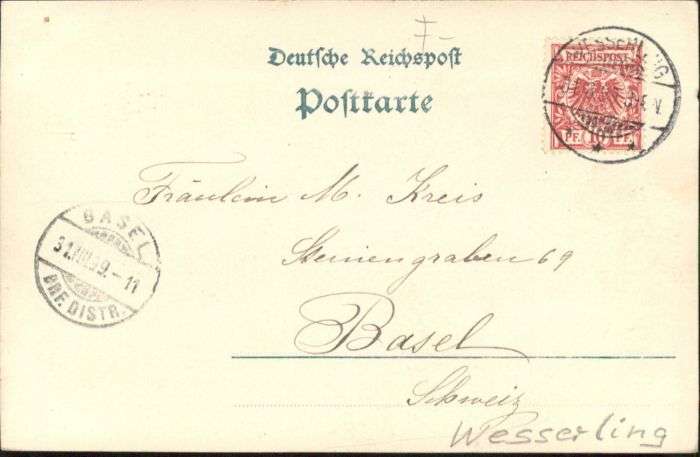 7-
Deutsche Reichspost
Postkarte
REICHSPOST
PF. 10 PF.
WESSERLING
Fräulein M. Kreis
Steinengraben 69
Basel
Schweiz
BASEL
31.VIII.99.-11
BRF. DISTR.
Wesserling